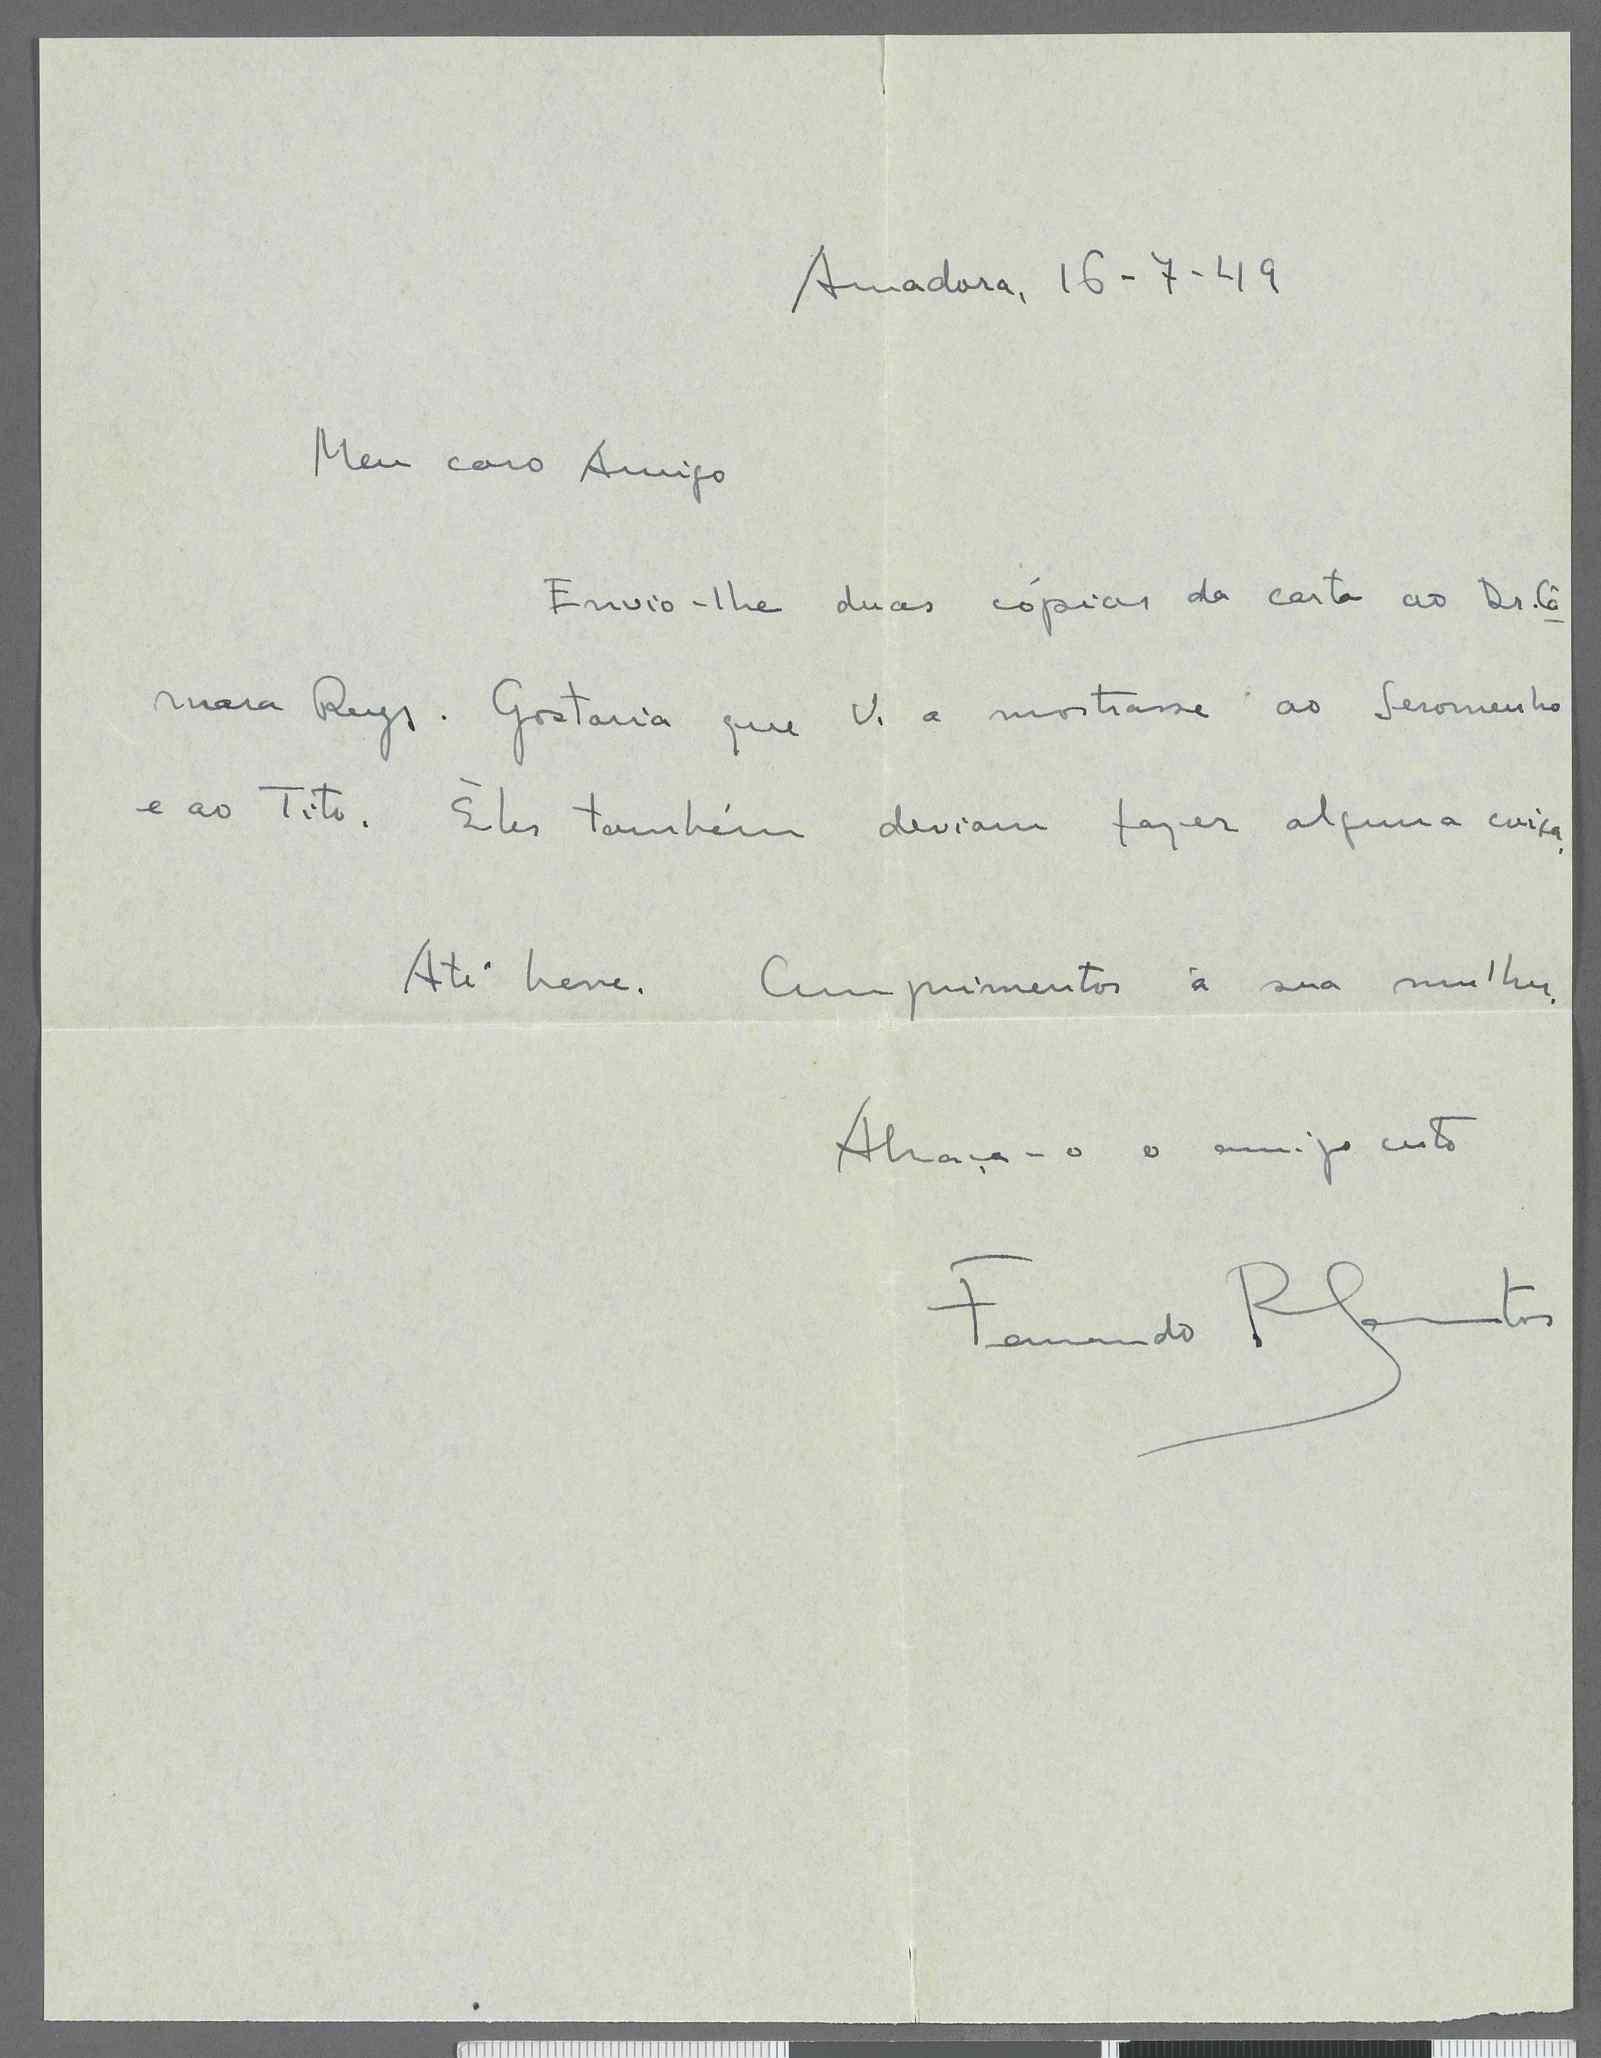 Amadora, 16-7-49
Meu caro Amigo
Envio-lhe duas cópias da carta ao Dr. Câ
mara Reys. Gostaria que V. a mostrasse ao Seromenho
e ao Tito. Êles também deviam fazer alguma coisa.
Até breve. Cumprimentos à sua mulher.
Abraça-o o amigo certo
Fernando R Santos